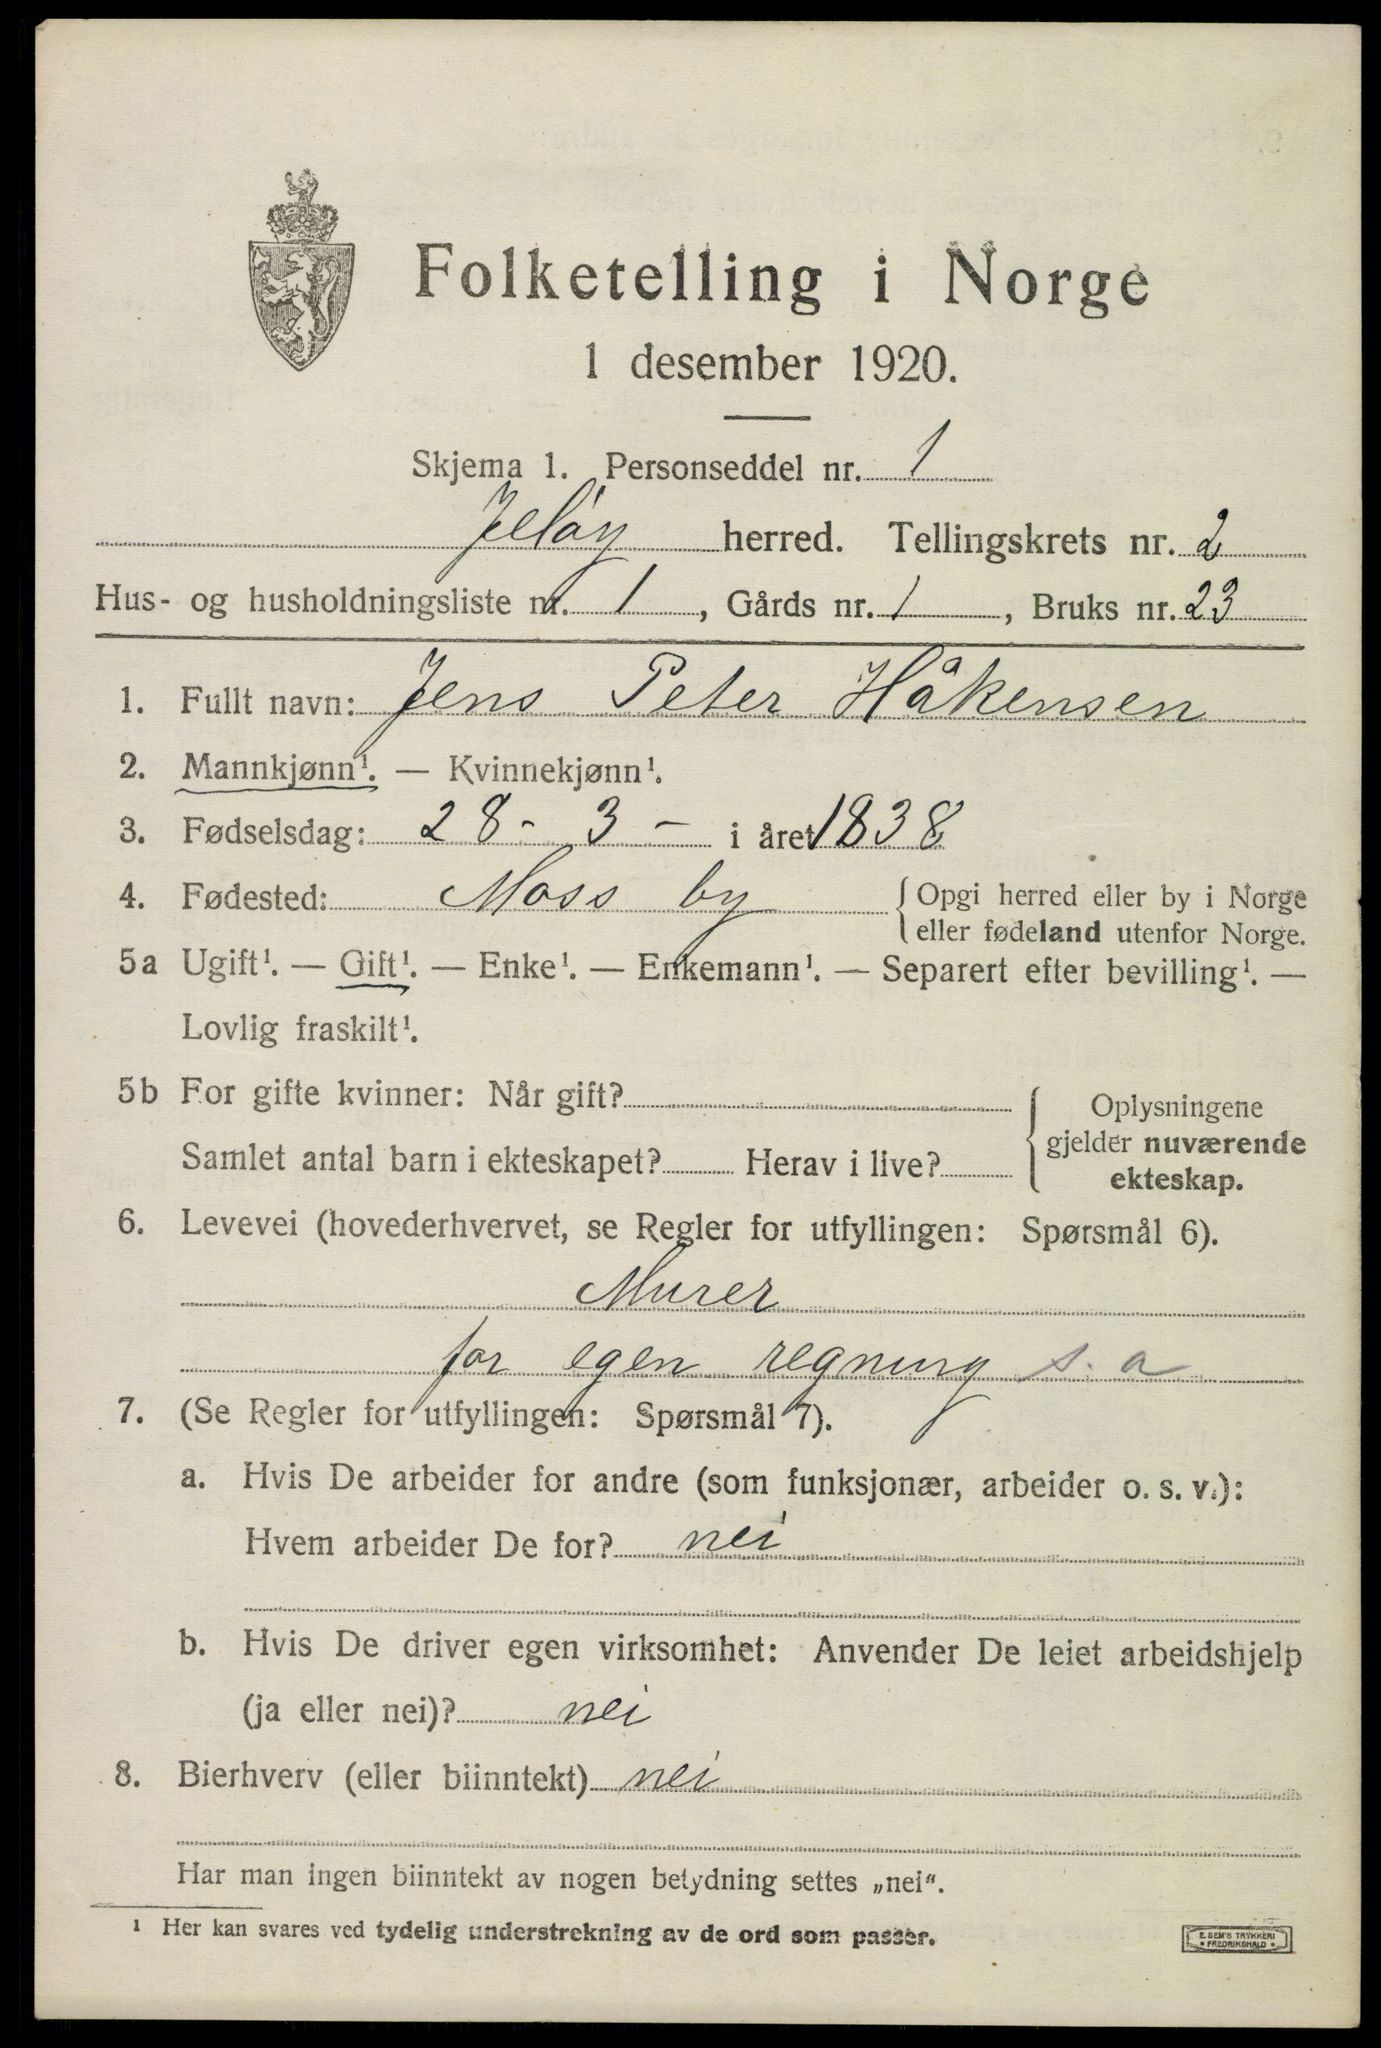 Folketelling i Norge
1 desember 1920.
Skjema 1. Personseddel nr. 1
Jeløy herred. Tellingskrets nr. 2
Hus- og husholdningsliste nr. 1, Gårds nr. 1, Bruks nr. 23
1. Fullt navn: Jens Peter Håkensen
2. Mannkjønn¹. — Kvinnekjønn¹.
3. Fødselsdag: 28 - 3 - i året 1838
4. Fødested: Moss by { Opgi herred eller by i Norge
eller fødeland utenfor Norge.
5a Ugift¹. — Gift¹. — Enke¹. — Enkemann¹. — Separert efter bevilling¹. —
Lovlig fraskilt¹.
5b For gifte kvinner: Når gift?
Samlet antal barn i ekteskapet? Herav i live?
{ Oplysningene
gjelder nuværende
ekteskap.
6. Levevei (hovederhvervet, se Regler for utfyllingen: Spørsmål 6).
Murer
for egen regning s. a
7. (Se Regler for utfyllingen: Spørsmål 7).
a. Hvis De arbeider for andre (som funksjonær, arbeider o. s. v.):
Hvem arbeider De for? nei
b. Hvis De driver egen virksomhet: Anvender De leiet arbeidshjelp
(ja eller nei)? nei
8. Bierhverv (eller biinntekt) nei
Har man ingen biinntekt av nogen betydning settes „nei“.
1 Her kan svares ved tydelig understrekning av de ord som passer.
E. SEM'S TRYKKERI
• FREDRIKSHALD •